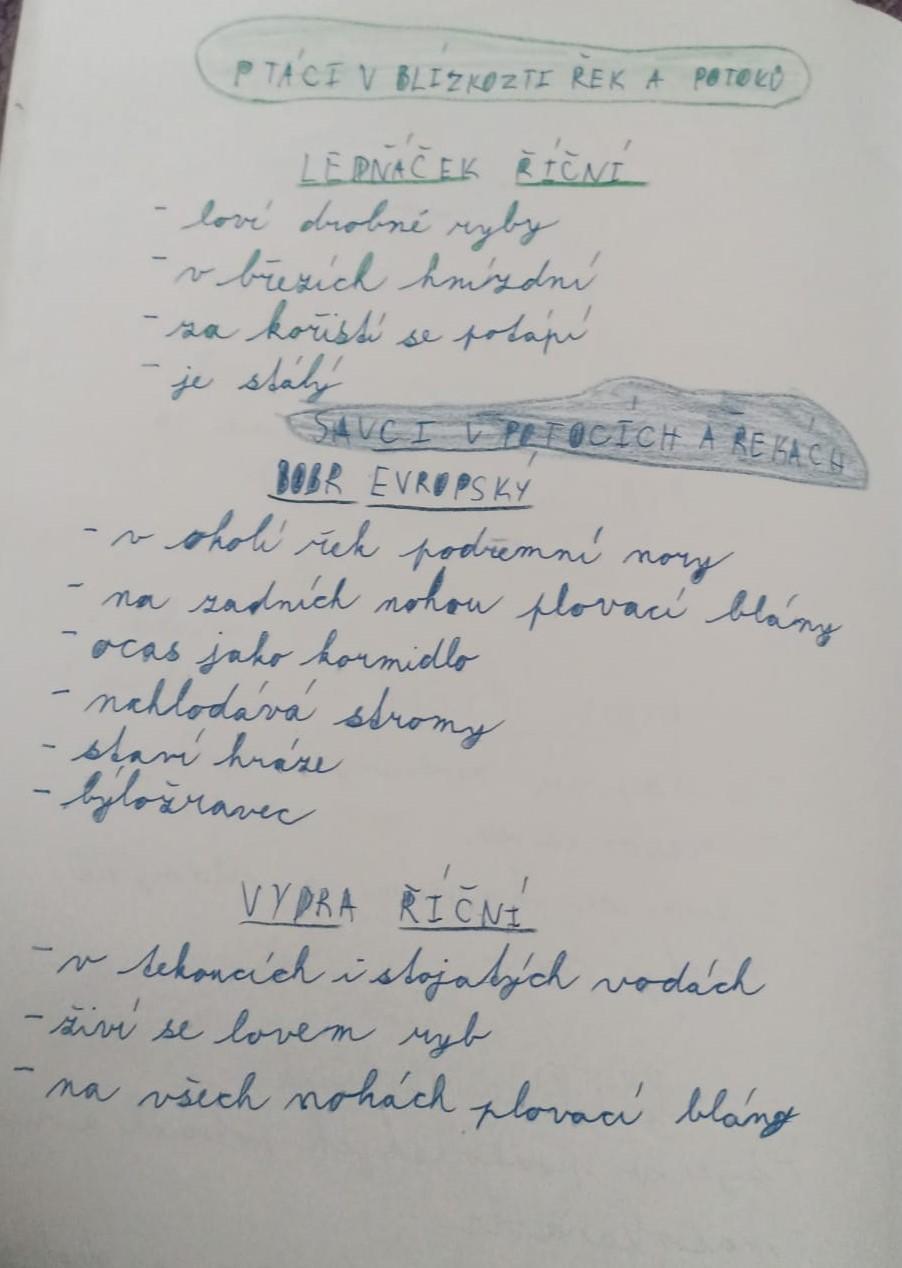 PTÁCI V BLÍZKOZTI ŘEK A POTOKŮ
LEDŇÁČEK ŘÍČNÍ
- loví drobné ryby
- v březích hnízdní
- za kořistí se potápí
- je stálý
SAVCI V POTOCÍCH A ŘEKÁCH
BOBR EVROPSKÝ
- v okolí řek podzemní nory
- na zadních nohou plovací blány
- ocas jako kormidlo
- nahlodává stromy
- staví hráze
- býložravec
VYDRA ŘÍČNÍ
- v tekoucích i stojatých vodách
- živí se lovem ryb
- na všech nohách plovací blány